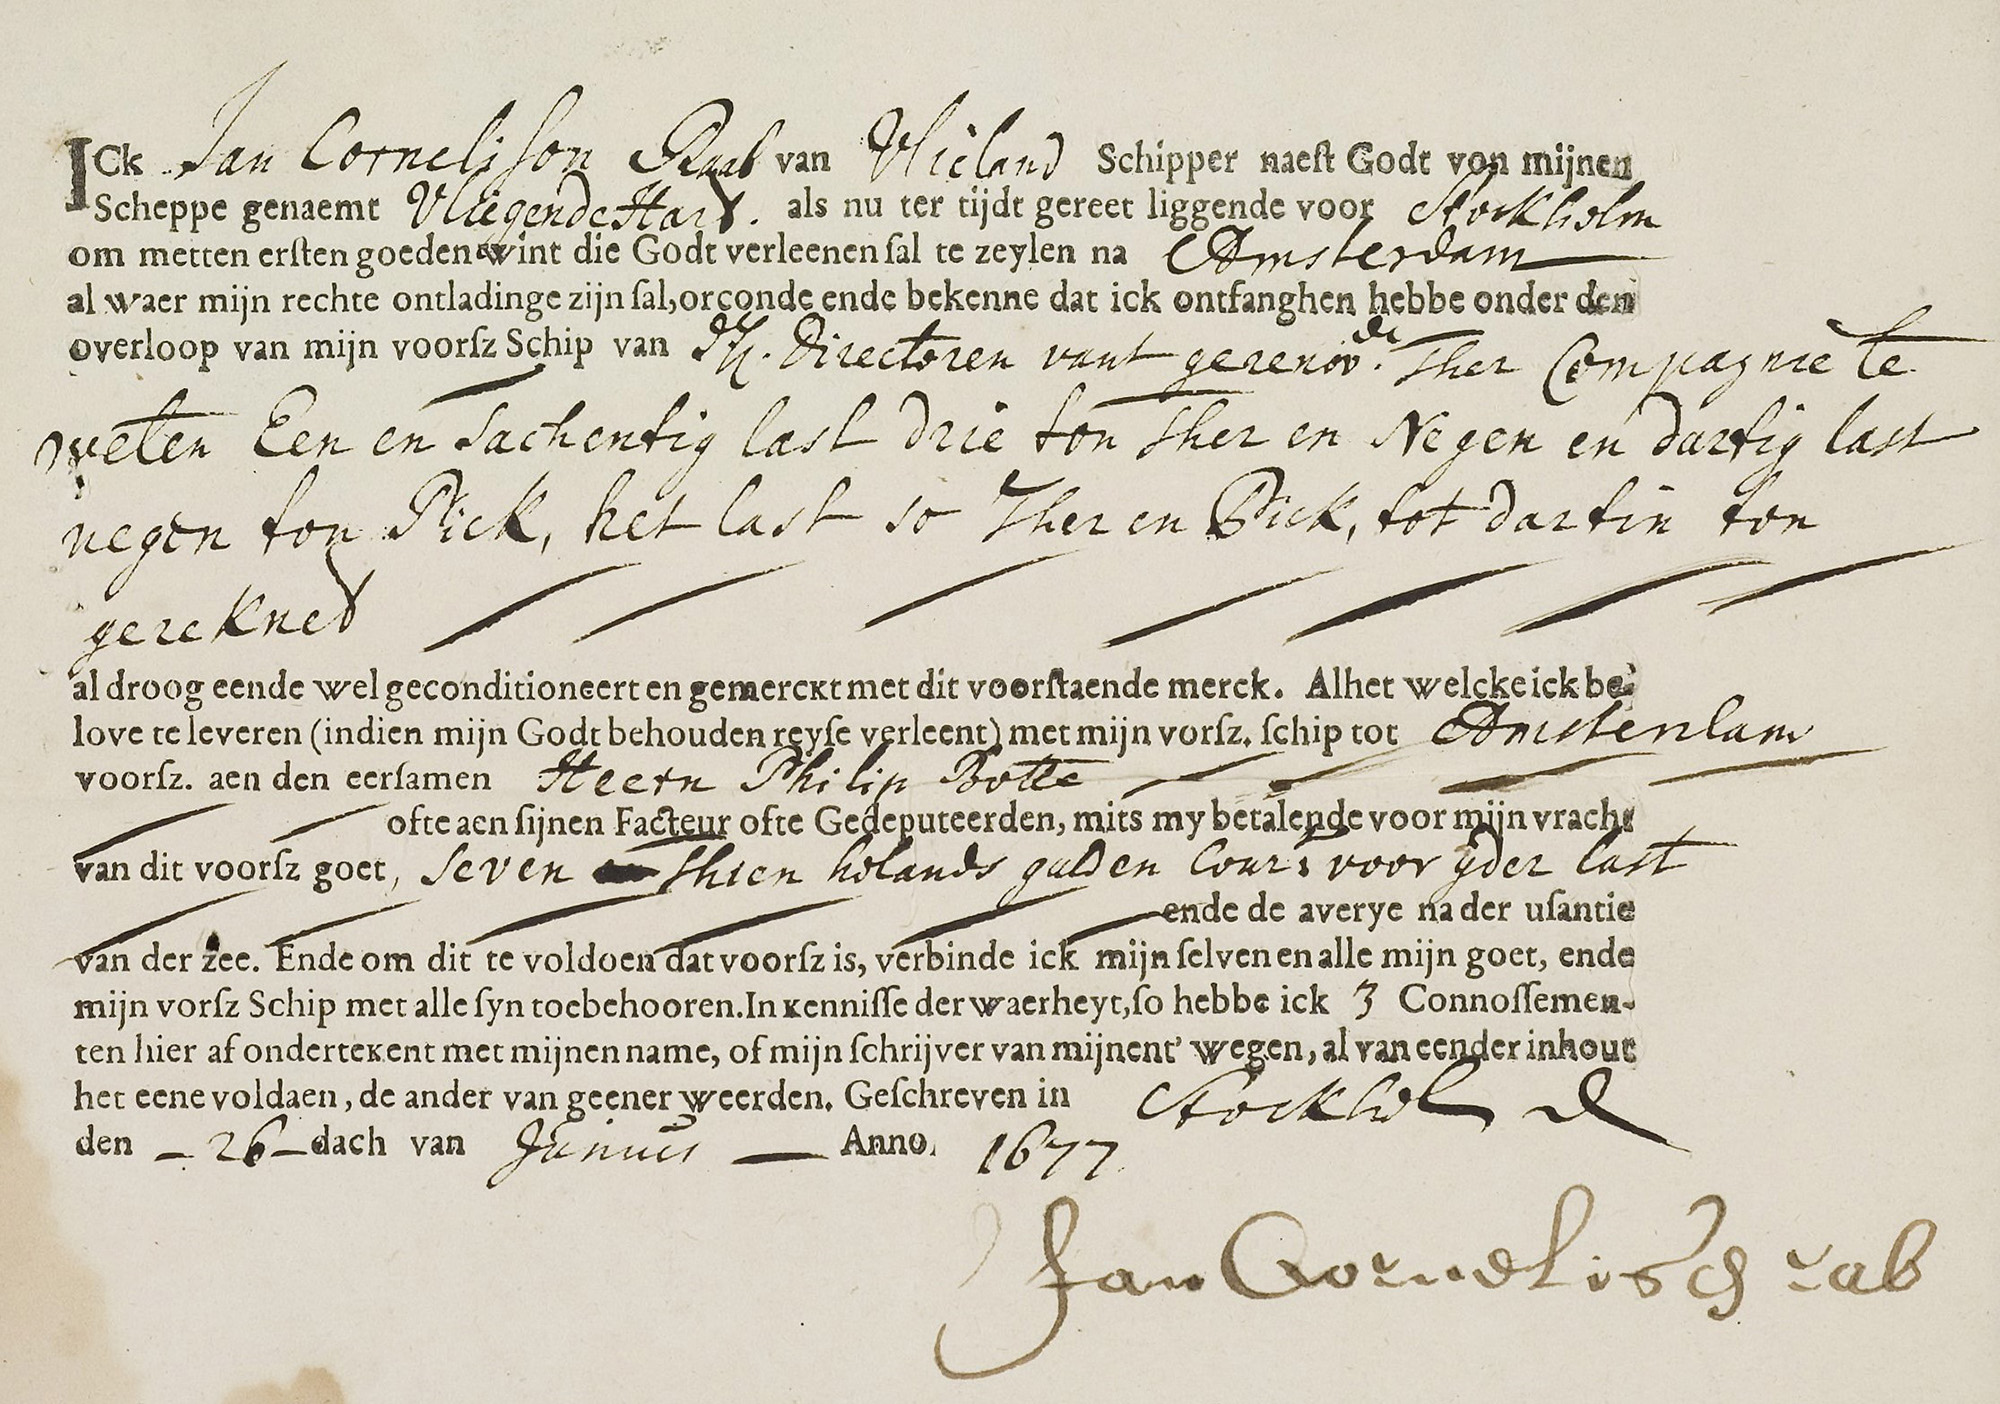 ICk Jan Cornelisson Raab van Vlieland Schipper naest Godt von mijnen
Scheppe genaemt Vliegende Hart. als nu ter tijdt gereet liggende voor Stockholm
om metten ersten goeden wint die Godt verleenen sal te zeylen na Amsterdam
al waer mijn rechte ontladinge zijn sal, orconde ende bekenne dat ick ontfanghen hebbe onder den
overloop van mijn voorsz Schip van HH. Directoren vant gerenovde. Ther Compagnie te
weten Een en tachentig last drie ton Ther en Negen en dartig last
negen ton Pick, het last so Ther en Pick, tot dartin ton
gereknet
al droog eende wel geconditioneert en gemerckt met dit voorstaende merck. Al het welcke ick be-
love te leveren (indien mijn Godt behouden reyse verleent) met mijn vorsz. schip tot Amsterdam
voorsz. aen den eersamen Heern Philip Botte
ofte aen sijnen Facteur ofte Gedeputeerden, mits my betalende voor mijn vracht
van dit voorsz goet, seven thien holands gulden Cour: voor yder last
ende de averye na der usantie
van der zee. Ende om dit te voldoen dat voorsz is, verbinde ick mijn selven en alle mijn goet, ende
mijn vorsz Schip met alle syn toebehooren. In kennisse der waerheyt, so hebbe ick 3 Connossemen-
ten hier af ondertekent met mijnen name, of mijn schrijver van mijnent' wegen, al van eender inhout
het eene voldaen, de ander van geener weerden. Geschreven in Stockhol
den - 26 - dach van Junius — Anno. 1677
Jan Cornelisen rab